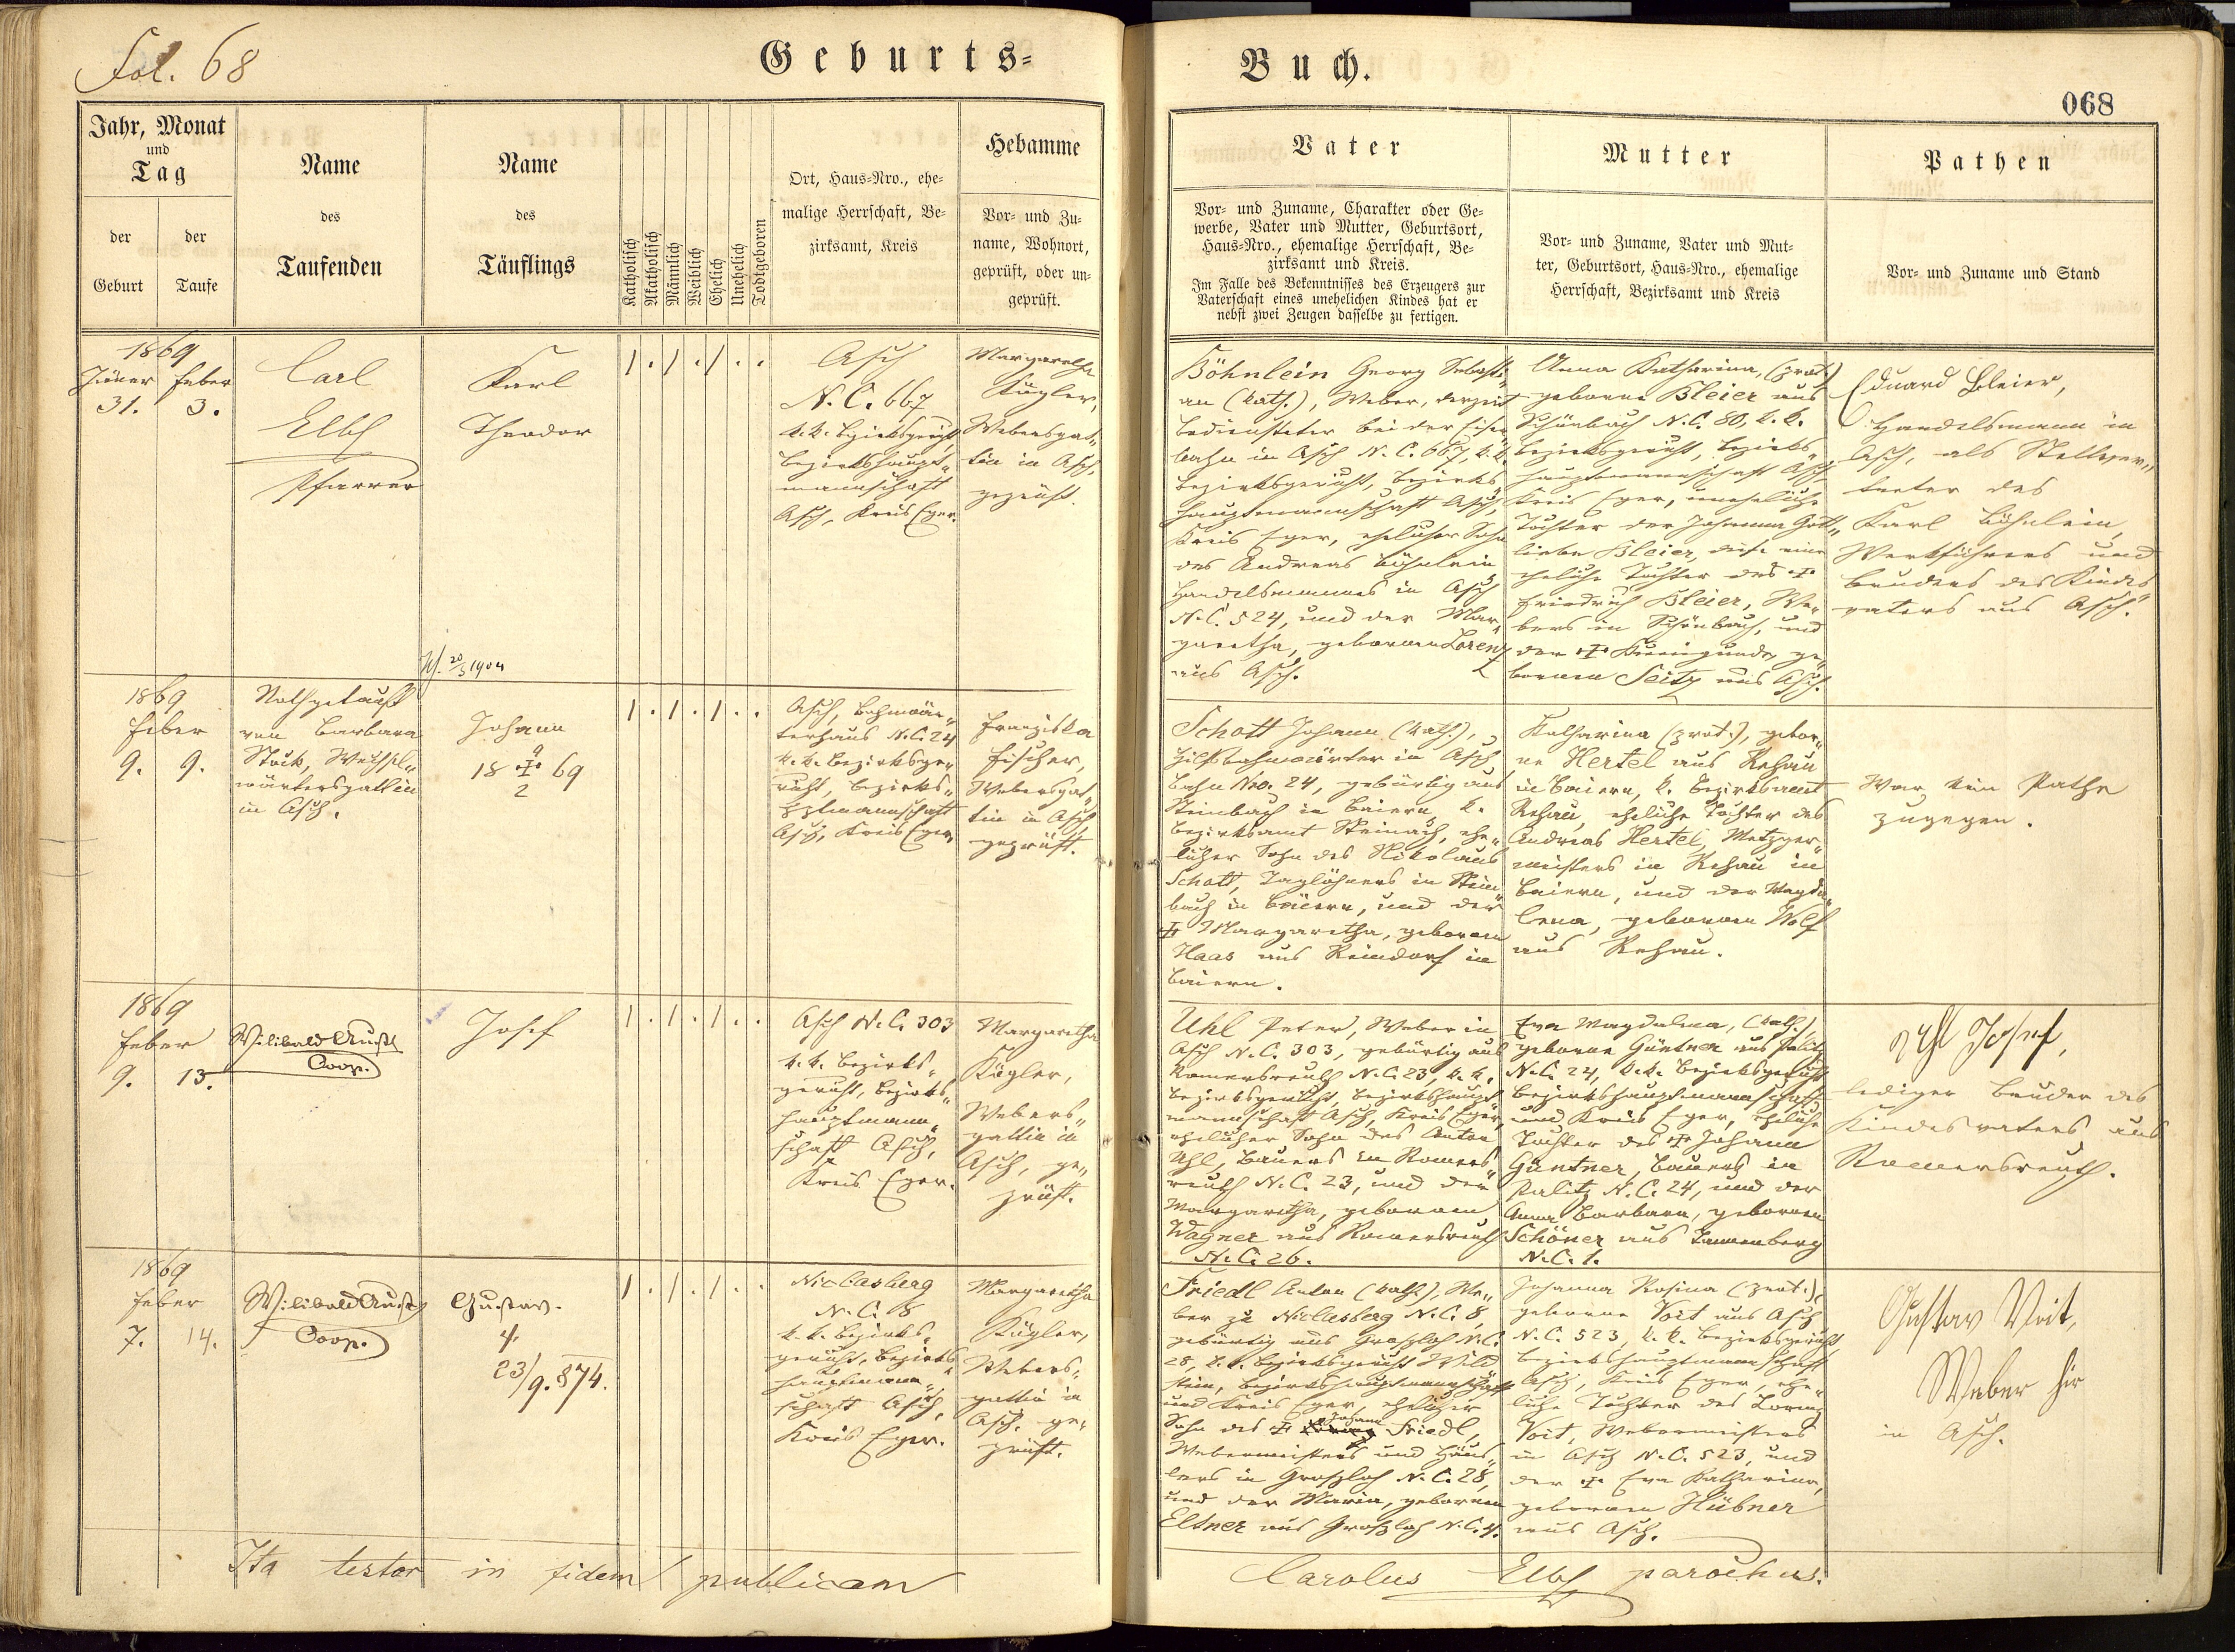 Fol. 68
Geburts=
Buch.
068
Jahr, Monat
und
Tag
der
Geburt
der
Taufe
Name
des
Taufenden
Name
des
Täuflings
Katholisch
Akatholisch
Männlich
Weiblich
Ehelich
Unehelich
Todtgeboren
Ort, Haus=Nro., ehe=
malige Herrschaft, Be=
zirksamt, Kreis
Hebamme
Vor= und Zu=
name, Wohnort,
geprüft, oder un=
geprüft.
Vater
Vor= und Zuname, Charakter oder Ge=
werbe, Vater und Mutter, Geburtsort,
Haus=Nro., ehemalige Herrschaft, Be=
zirksamt und Kreis.
Im Falle des Bekenntnisses des Erzeugers zur
Vaterschaft eines unehelichen Kindes hat er
nebst zwei Zeugen dasselbe zu fertigen.
Mutter
Vor= und Zuname, Vater und Mut=
ter, Geburtsort, Haus=Nro., ehemalige
Herrschaft, Bezirksamt und Kreis
Pathen
Vor= und Zuname und Stand
1869
Jäner Feber
31. 3.
Carl
Elbl
Pfarrer
Karl
Theodor
1 . 1 . 1 . .
Asch
N.C. 667
k.k. Bezirksgericht,
Bezirkshaupt„
mannschaft
Asch, Kreis Eger.
Margaretha
Kügler,
Webersgat„
tin in Asch,
geprüft.
Böhnlein Georg Sebasti„
an (kath.), Weber, derzeit
Bediensteter bei der Eisen
bahn in Asch N.C. 667, k.k.
Bezirksgericht, Bezirks„
hauptmannschaft Asch,
Kreis Eger, ehelicher Sohn
des Andreas Böhnlein
Handelsmannes in Asch
N.C. 524, und der Mar„
garetha, gebornen Lorenz
aus Asch.
Anna Katharina, (prot.)
geborne Bleier aus
Schönbach N.C. 80, k.k.
Bezirksgericht, Bezirks„
hauptmannschaft Asch,
Kreis Eger, uneheliche
Tochter der Johanna Gott„
liebe Bleier, diese eine
eheliche Tochter des †
Friedrich Bleier, We„
bers in Schönbach, und
der † Kunigunde, ge„
bornen Seitz aus Asch.
Eduard Bleier,
Handelsmann in
Asch, als Stellver„
treter des
Karl Böhnlein,
Werkführers und
Bruders des Kindes„
vaters aus Asch.
20/3 1904
1869
Feber
9. 9.
Nothgetauft
von Barbara
Stöck, Wechsel„
wärtersgattin
in Asch.
Johann
9
18 † 69
2
1 . 1 . 1 . .
Asch, Bahnwär„
terhaus N.C. 24
k.k. Bezirksge„
richt, Bezirks„
hptmannschaft
Asch, Kreis Eger.
Franziska
Fischer,
Webersgat„
tin in Asch
geprüft.
Schott Johann (kath.),
Hilfsbahnwärter in Asch,
Bahn Nro. 24, gebürtig aus
Steinbach in Baiern, k.
Bezirksamt Steinach, ehe„
licher Sohn des Nikolaus
Schott, Taglöhners in Stein„
bach in Baiern, und der
† Margaretha, gebornen
Haas aus Reindorf in
Baiern.
Katharina (prot.), gebor„
ne Hertel aus Rehau
in Baiern, k. Bezirksamt
Rehau, eheliche Tochter des
Andreas Hertel, Metzger„
meisters in Rehau in
Baiern, und der Magda„
lena, gebornen Wolf
aus Rehau.
War kein Pathe
zugegen.
1869
Feber
9. 13.
Wilibald
Coop.
Josef
1 . 1 . 1 . .
Asch N.C. 303
k.k. Bezirks„
gericht, Bezirks„
hauptmann„
schaft Asch,
Kreis Eger.
Margaretha
Kügler,
Webers„
gattin in
Asch, ge„
prüft.
Uhl Peter, Weber in
Asch N.C. 303, gebürtig aus
Romersreuth N.C. 23, k.k.
Bezirksgericht, Bezirkshaupt
mannschaft Asch, Kreis Eger,
ehelicher Sohn des Anton
Uhl, Bauers in Romers„
reuth N.C. 23, und der
Margaretha, gebornen
Wagner aus Romersreuth
N.C. 26.
Eva Magdalena, (kath.),
geborne Güntner aus Palitz
N.C. 24, k.k. Bezirksgericht
Bezirkshauptmannschaft
und Kreis Eger, eheliche
Tochter des † Johann
Güntner, Bauers in
Palitz N.C. 24, und der
Anna Barbara, gebornen
Schöner aus Tannenberg
N.C. 1.
Uhl Josef,
lediger Bruder des
Kindesvaters aus
Romersreuth.
1869
Feber
7. 14.
Wilibald
Coop.
Gustav.
†
23/9. 874.
1 . 1 . 1 . .
Niclasberg
N.C. 8
k.k. Bezirks„
gericht, Bezirks„
hauptmann„
schaft Asch,
Kreis Eger.
Margaretha
Kügler,
Webers„
gattin in
Asch, ge„
prüft.
Friedl Anton (kath.), We„
ber zu Niclasberg N.C. 8,
gebürtig aus Großloh N.C.
28, k.k. Bezirksgericht Wild
stein, Bezirkshauptmannschaft
und Kreis Eger, ehelicher
Sohn des † Johann Friedl,
Webermeisters und Häus„
lers in Großloh N.C. 28,
und der Maria, gebornen
Eltner aus Großloh N.C. 4.
Johanna Rosina (prot.),
geborne Voit aus Asch
N.C. 523, k.k. Bezirksgericht,
Bezirkshauptmannschaft
Asch, Kreis Eger, ehe„
liche Tochter des Lorenz
Voit, Webermeisters
in Asch N.C. 523, und
der † Eva Katharina,
gebornen Hübner
aus Asch.
Gustav Voit,
Weber hir
in Asch.
Ita testor in fidem publicam
Carolus Elbl parochus.